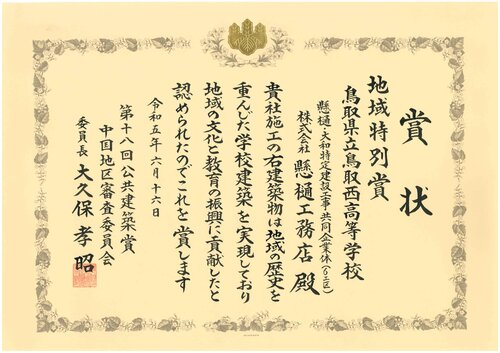 賞状
地域特別賞
鳥取県立鳥取西高等学校
懸樋・大和特定建設工事共同企業体(6工区)
株式会社 懸樋工務店 殿
貴社施工の右建築物は地域の歴史を
重んじた学校建築を実現しており
地域の文化と教育の振興に貢献したと
認められたのでこれを賞します
令和五年六月十六日
第十八回公共建築賞
中国地区審査委員会
委員長 大久保孝昭